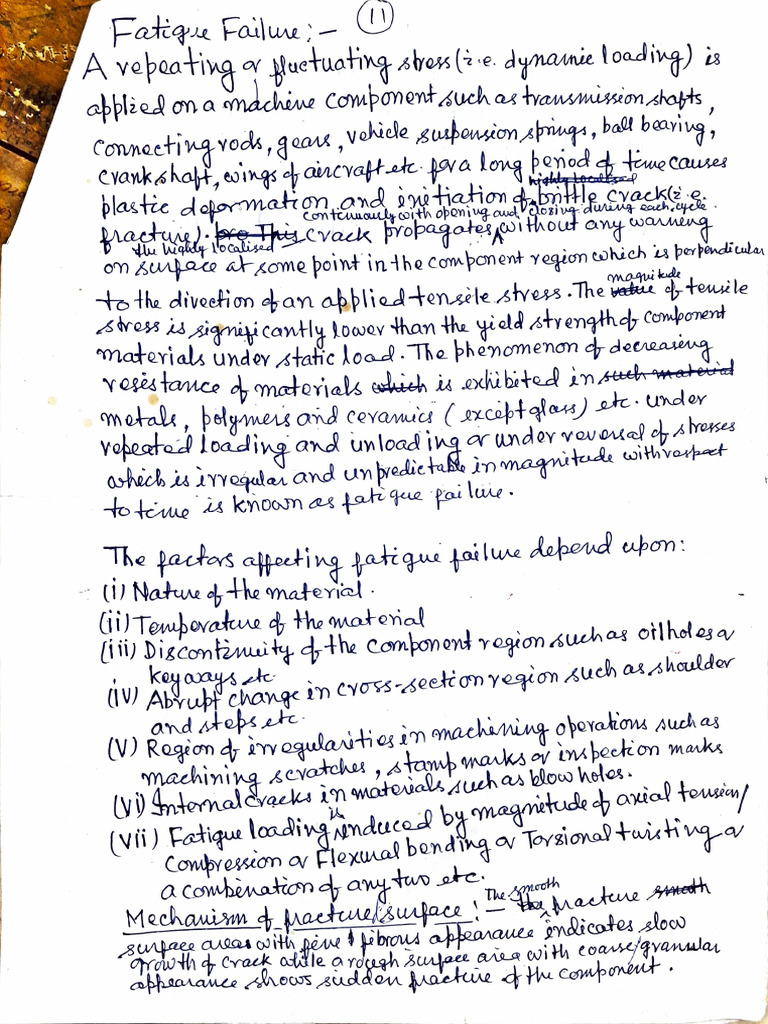 11
Fatigue Failure:-
A repeating or fluctuating stress (i.e. dynamic loading) is
applied on a machine component such as transmission shafts,
connecting rods, gears, vehicle suspension springs, ball bearing,
crank shaft, wings of aircraft etc for a long period of time causes
highly localised
plastic deformation and initiation of brittle crack (i.e.
continuously with opening and closing during each cycle.
fracture). This crack propagates without any warning
the highly localised
on surface at some point in the component region which is perpendicular
to the direction of an applied tensile stress. The value magnitude of tensile
stress is significantly lower than the yield strength of component
materials under static load. The phenomenon of decreasing
resistance of materials which is exhibited in such material
metals, polymers and ceramics (except glass) etc. under
repeated loading and unloading or under reversal of stresses
which is irregular and unpredictable in magnitude with respect
to time is known as fatigue failure.
The factors affecting fatigue failure depend upon:
(i) Nature of the material.
(ii) Temperature of the material
(iii) Discontinuity of the component region such as oilholes or
keyways etc
(iv) Abrupt change in cross-section region such as shoulder
and steps etc.
(V) Region of irregularities in machining operations such as
machining scratches, stamp marks or inspection marks
(vi) Internal cracks in materials such as blow holes.
(vii) Fatigue loading is induced by magnitude of axial tension/
compression or Flexural bending or Torsional twisting or
a combination of any two etc.
Mechanism of fracture surface:- The smooth the fracture smooth
surface areas with fine & fibrous appearance indicates slow
growth of crack while a rough surface area with coarse/granular
appearance shows sudden fracture of the component.